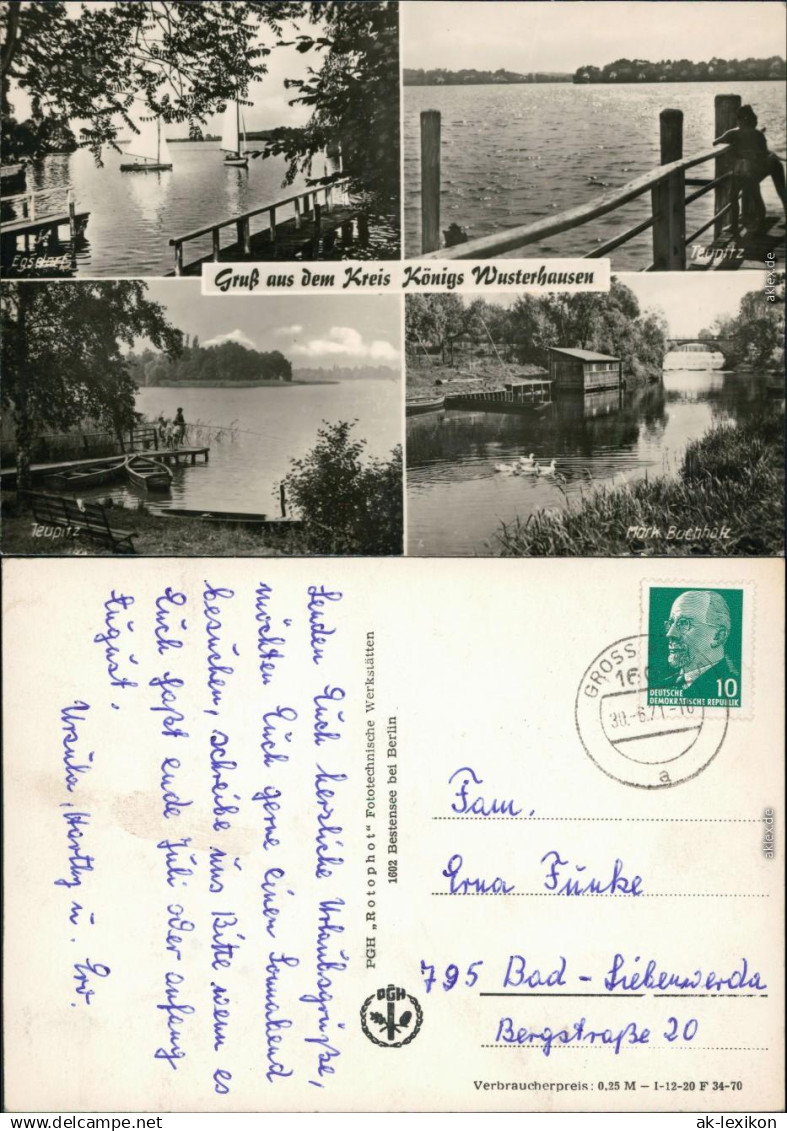 Egsdorf
Teupitz
Gruß aus dem Kreis Königs Wusterhausen
Teupitz
Märk. Buchholz
Senden Euch herzliche Urlaubsgrüße,
möchten Euch gerne einen Sonnabend
besuchen, schreibe uns Bitte wenn es
Euch paßt ende Juli oder anfang
August.
Ursula,
u.
PGH „Rotophot“ Fototechnische Werkstätten
1602 Bestensee bei Berlin
PGH
GROSS
30.-6.71.-16
a
DEUTSCHE
DEMOKRATISCHE REPUBLIK
10
Fam.
Erna Funke
795 Bad-Liebenwerda
Bergstraße 20
Verbraucherpreis: 0,25 M – I-12-20 F 34-70
aklex.de
aklex.de
www.akpool.de/CMU.BE